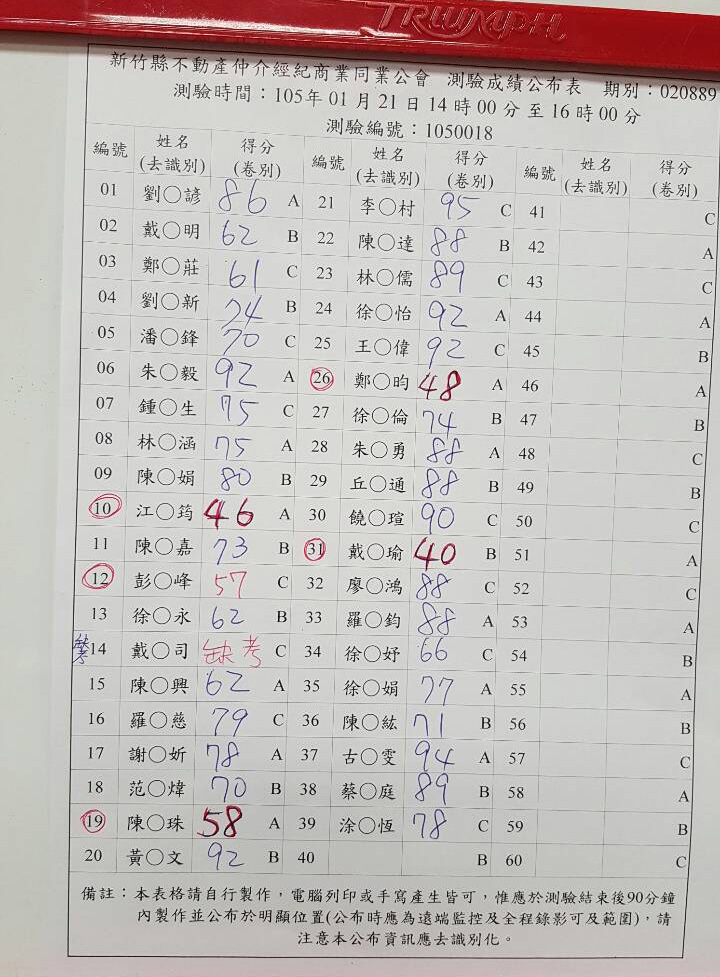 TRIUMPH
新竹縣不動產仲介經紀商業同業公會 測驗成績公布表 期別:020889
測驗時間:105年01月21日14時00分至16時00分
測驗編號:1050018
編號 姓名(去識別) 得分(卷別) 編號 姓名(去識別) 得分(卷別) 編號 姓名(去識別) 得分(卷別)
01 劉〇諺 86 A 21 李〇村 95 C 41 C
02 戴〇明 62 B 22 陳〇達 88 B 42 A
03 鄭〇莊 61 C 23 林〇儒 89 C 43 C
04 劉〇新 74 B 24 徐〇怡 92 A 44 A
05 潘〇鋒 70 C 25 王〇偉 92 C 45 B
06 朱〇毅 92 A 26 鄭〇昀 48 A 46 A
07 鍾〇生 75 C 27 徐〇倫 74 B 47 B
08 林〇涵 75 A 28 朱〇勇 88 A 48 C
09 陳〇娟 80 B 29 丘〇通 88 B 49 B
10 江〇筠 46 A 30 饒〇瑄 90 C 50 C
11 陳〇嘉 73 B 31 戴〇瑜 40 B 51 A
12 彭〇峰 57 C 32 廖〇鴻 88 C 52 C
13 徐〇永 62 B 33 羅〇鈞 88 A 53 A
14 戴〇司 缺考 C 34 徐〇妤 66 C 54 B
15 陳〇興 62 A 35 徐〇娟 77 A 55 A
16 羅〇慈 79 C 36 陳〇紘 71 B 56 B
17 謝〇妡 78 A 37 古〇雯 94 A 57 C
18 范〇煒 70 B 38 蔡〇庭 89 B 58 A
19 陳〇珠 58 A 39 涂〇恆 78 C 59 B
20 黃〇文 92 B 40 B 60 C
備註:本表格請自行製作,電腦列印或手寫產生皆可,惟應於測驗結束後90分鐘
內製作並公布於明顯位置(公布時應為遠端監控及全程錄影可及範圍),請
注意本公布資訊應去識別化。